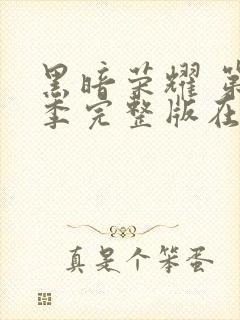 黑暗荣耀 第
季完整版在
真是个笨蛋